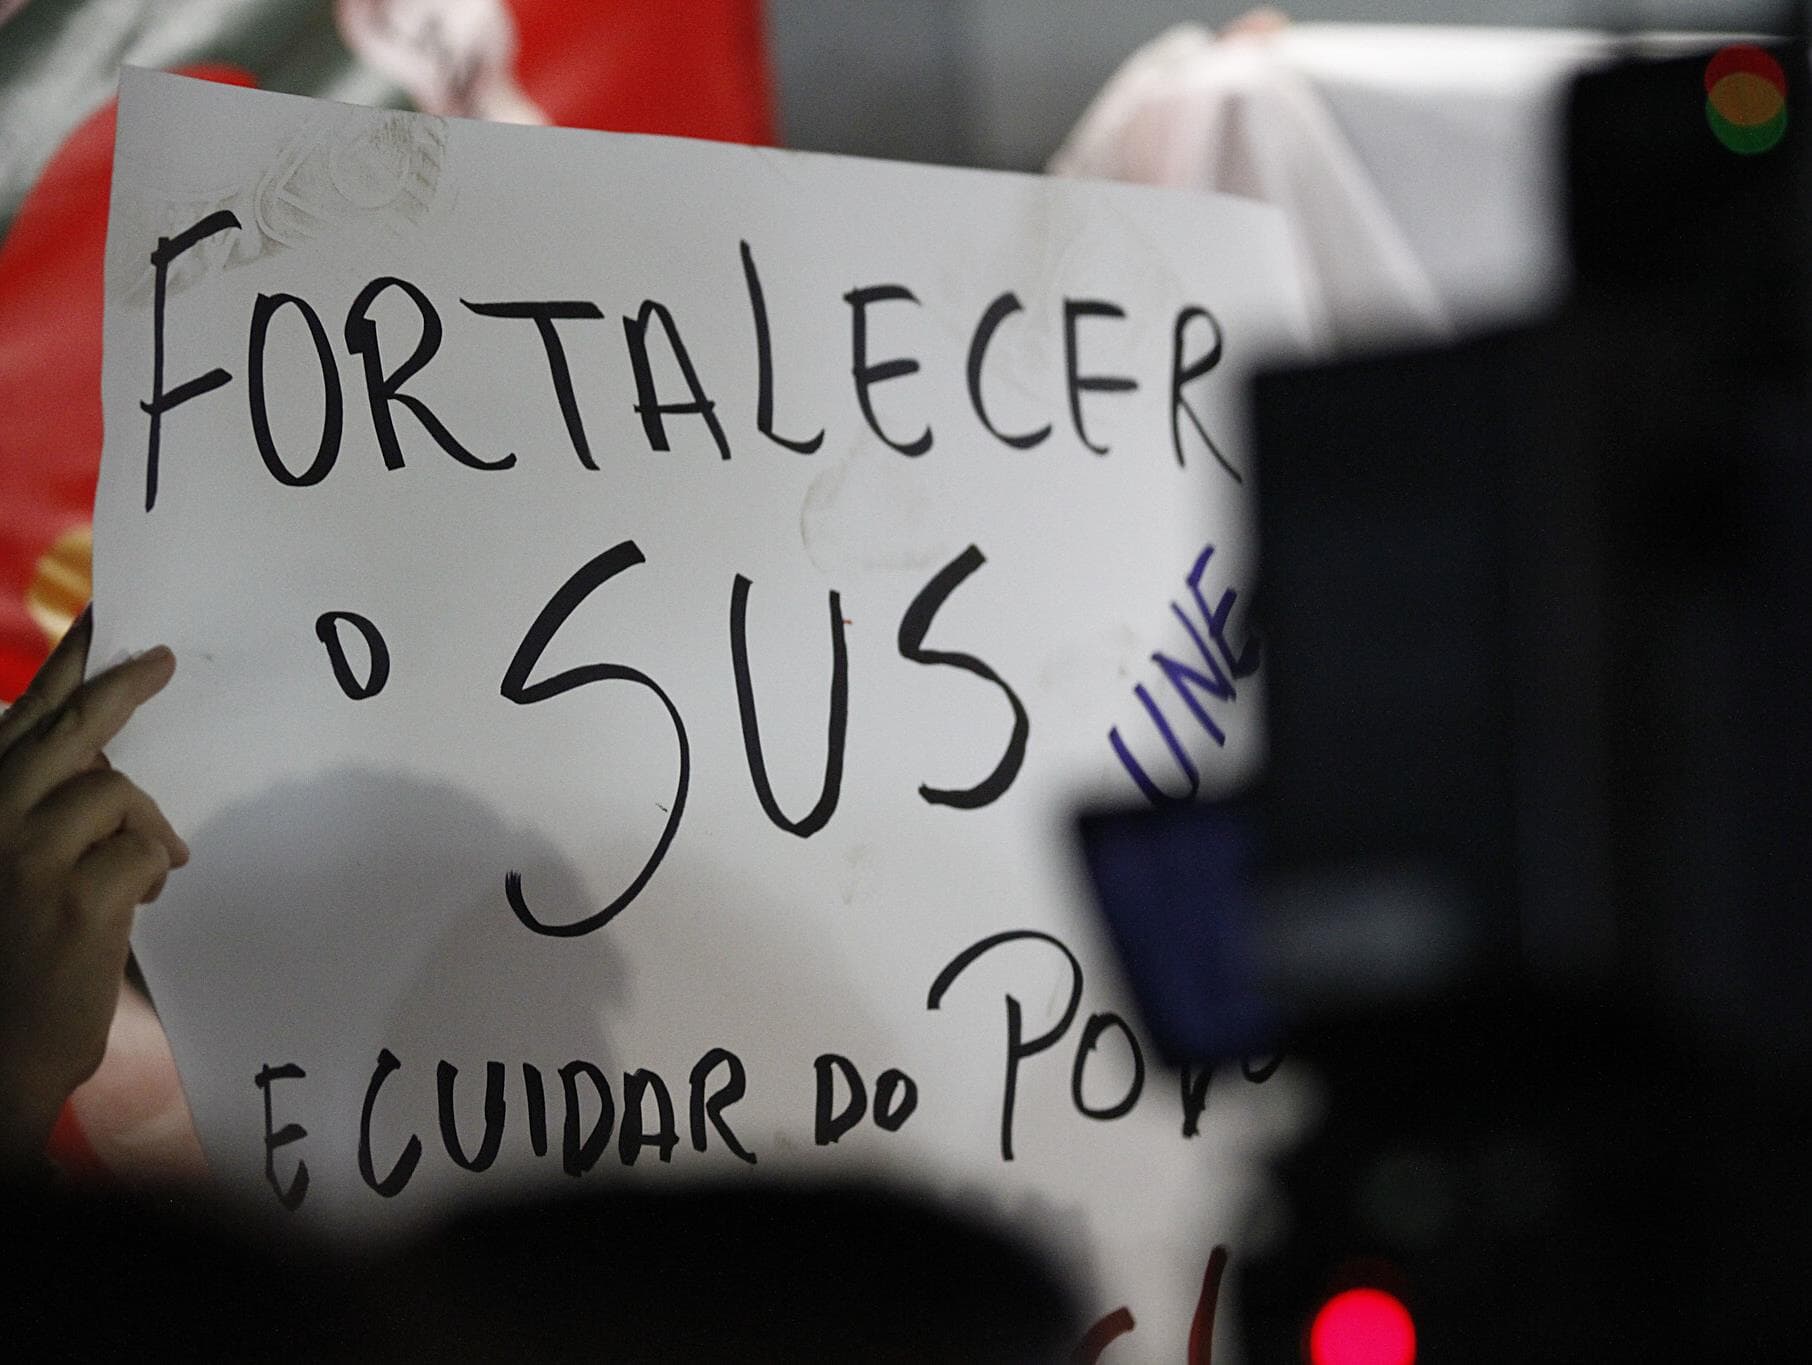 FORTALECER
O SUS
UNE
E CUIDAR DO POVO